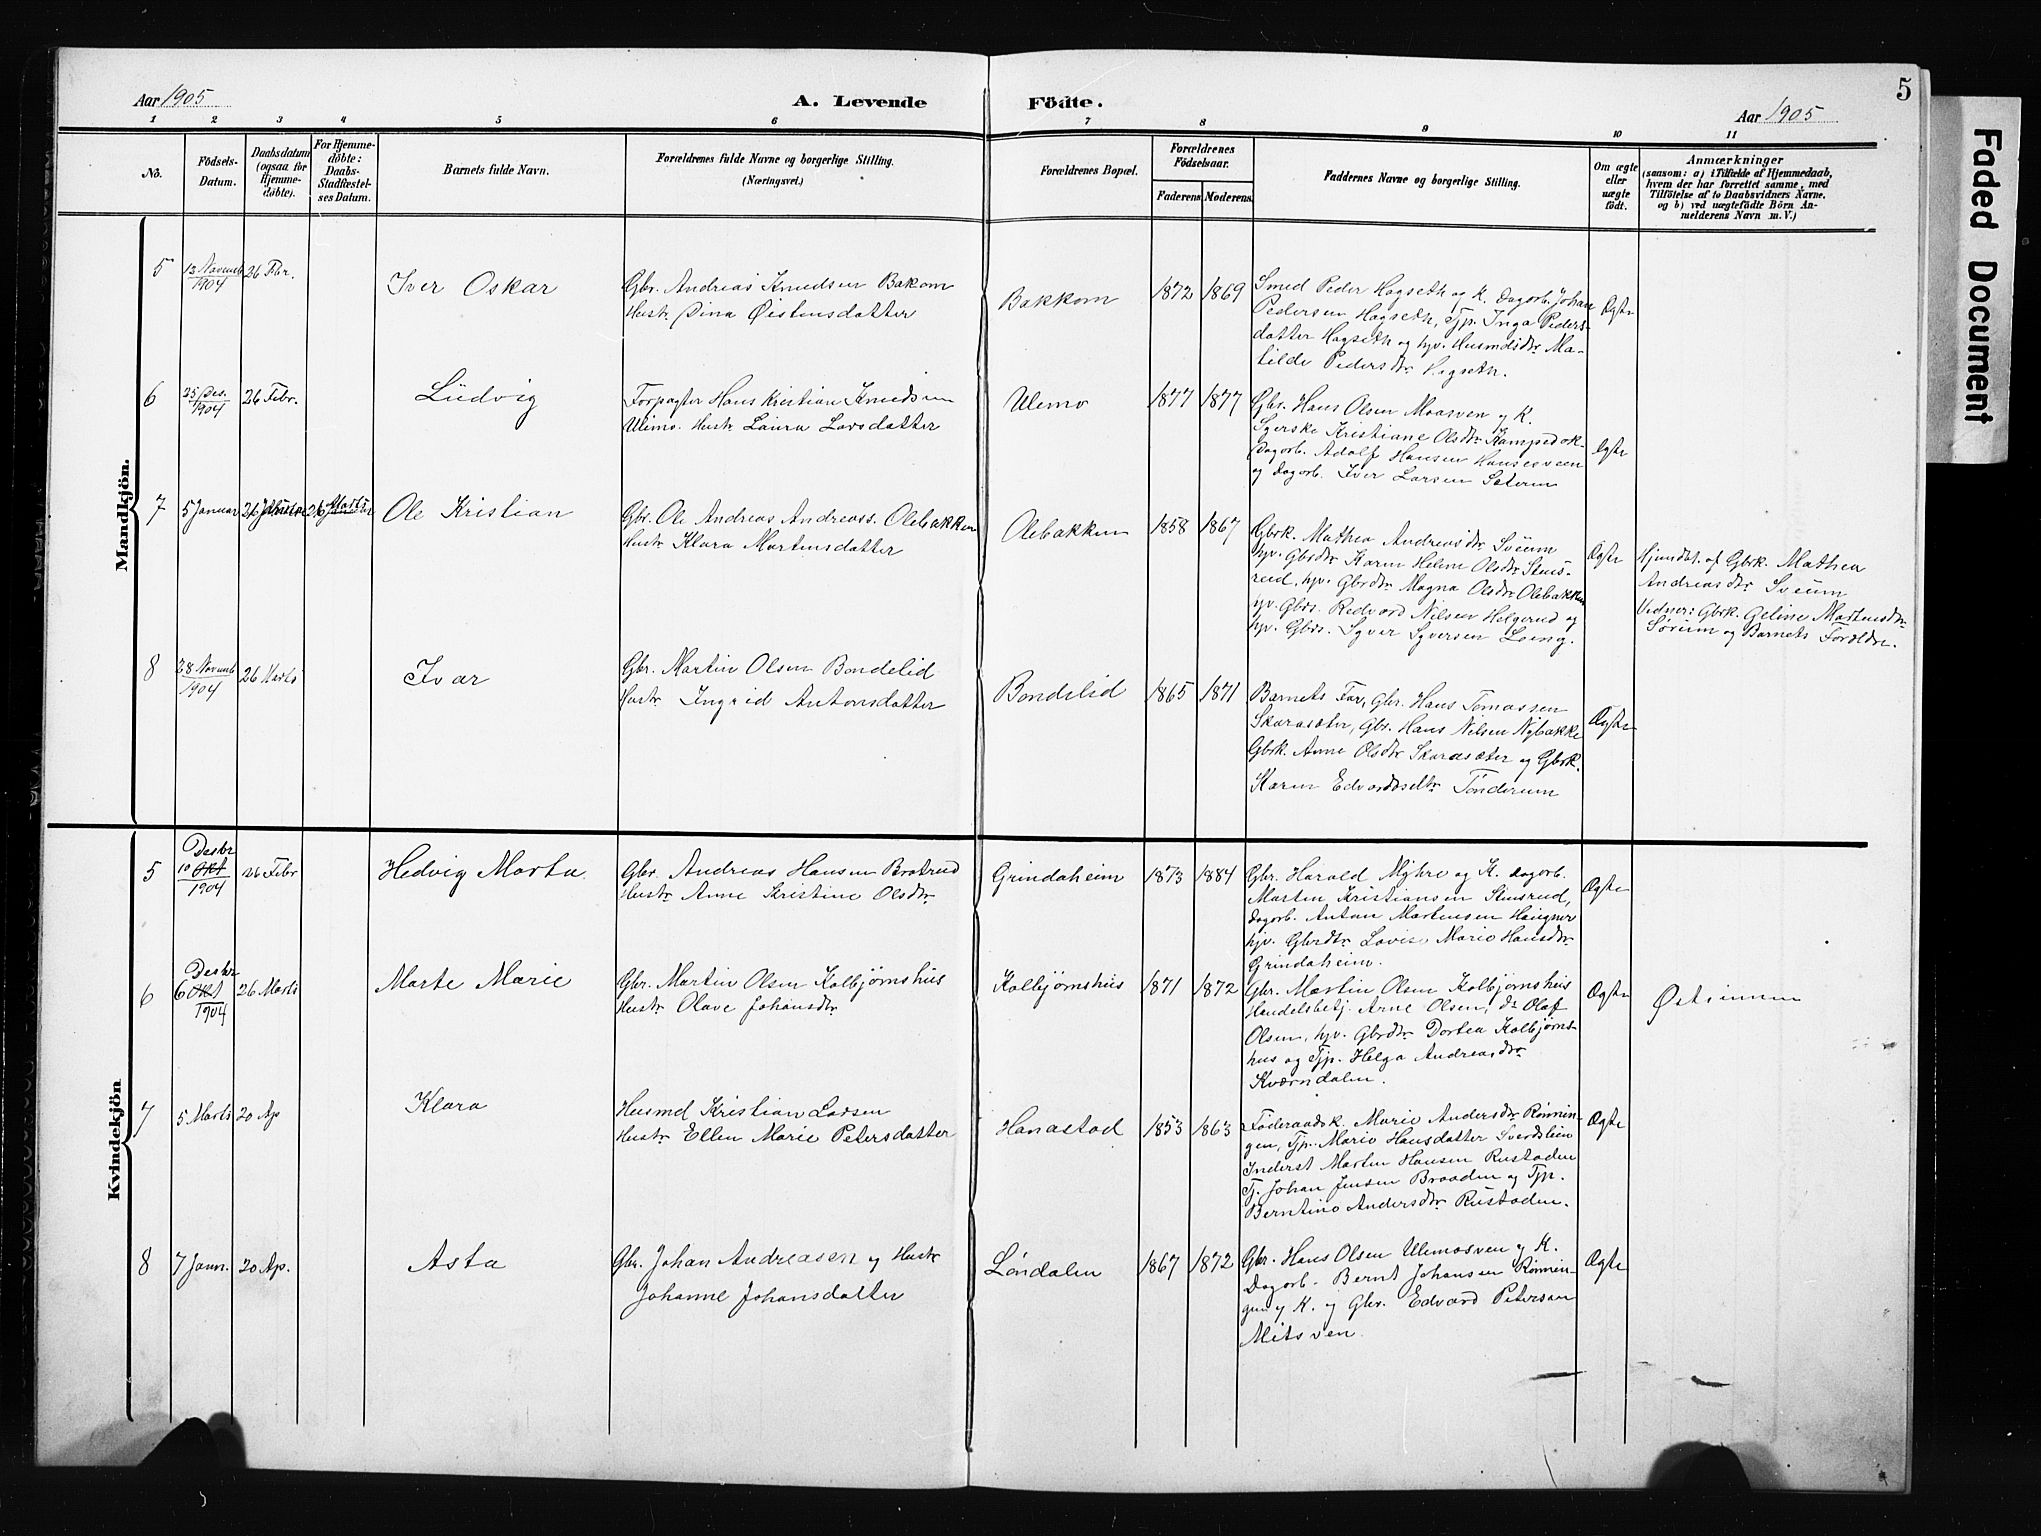 5
Aar 1905
A. Levende Födte.
Aar 1905
1 2 3 4 5 6 7 8 9 10 11
No.
Födsels-
Datum.
Daabsdatum
(ogsaa for
Hjemme-
döbte).
For Hjemme-
döbte:
Daabs-
Stadfæstel-
ses Datum.
Barnets fulde Navn.
Forældrenes fulde Navne og borgerlige Stilling.
(Næringsvei.)
Forældrenes Bopæl.
Forældrenes
Födselsaar.
Faderens
Moderens
Faddernes Navne og borgerlige Stilling.
Om ægte
eller
uægte
födt.
Anmærkninger
(saasom: a) i Tilfælde af Hjemmedaab,
hvem der har forrettet samme, med
Tilföielse af to Daabsvidners Navne,
og b) ved uægtefödte Börn An-
melderens Navn m. V.)
Mandkjön.
5
13 Novemb
1904
26 Fbr.
Iver Oskar
Gbr. Andreas Knudsen Bakom
Hustr. Dina Øistensdatter
Bakkom
1872
1869
Smed Peder Hagseth og K. Dagarb. Johan
Pedersen Hagseth, Tjp. Inga Peders-
datter Hagseth og hjv. Husmdsdtr. Ma-
tilde Pedersdtr. Hagseth.
Ægte
6
25 Des.
1904
26 Febr.
Ludvig
Forpagter Hans Kristian Knudsen
Ulimo. Hustr. Laura Larsdatter
Ulemo
1877
1877
Gbr. Hans Olsen Moasven og K.
Syerske Kristiane Olsdtr.
Dagarb. Adolf Hansen Hansesveen
og Dagarb. Iver Larsen
Ægte
7
5 Januar
26
26 Marts
Ole Kristian
Gbr. Ole Andreas Andreass. Olebakken
Hustr. Klara Martensdatter
Olebakken
1858
1867
Gbrk. Mathea Andreasdtr. Sveum
hjv. Gbrdtr. Karen Heline Olsdtr. Stens-
rud, hjv. Gbrdtr. Magna Olsdtr. Olebakken
hjv. Gbrs. Redvard Nilsen Helgerud og
hjv. Gbrs. Syver Syversen Loeng.
Ægte
Hjemdbt. af Gbrk. Mathea
Andreasdtr. Sveum
Vidner: Gbrk. Geline Martensdtr.
Sørum og Barnets Foreldre.
8
28 Novemb
1904
26 Marts
Ivar
Gbr. Martin Olsen Bondelid
Hustr. Ingrid Antonsdatter
Bondelid
1865
1871
Barnets Far, Gbr. Hans Tomassen
Skarasæter, Gbr. Hans Nilsen Nybakke
Gbrk. Anne Olsdtr. Skarasæter og Gbrk.
Karen Edvardsdtr. Tønderum
Ægte
Kvindekjön
5
Desbr
10 Okt
1904
26 Febr
Hedvig Marta
Gbr. Andreas Hansen Bratrud
Hustr. Anne Kristine Olsdtr.
Grindaheim
1873
1884
Gbr. Harald Myhre og K. Dagarb.
Martin Kristiansen Stensrud,
Dagarb. Anton Martensen Haugner
hjv. Gbrdtr. Lovise Marie Hansdtr.
Grindaheim.
Ægte
6
Desbr
6 Okt
1904
26 Marts
Marte Marie
Gbr. Martin Olsen Kolbjørnshus
Hustr. Olave Johansdtr.
Kolbjørnshus
1871
1872
Gbr. Martin Olsen Kolbjørnshus
Handelsbetj. Arne Olsen, do Olaf
Olsen, hjv. Gbrdtr. Dortea Kolbjørns-
hus og Tjp. Helga Andreasdtr.
Kværndalen.
Ægte
7
5 Marts
20 Ap
Klara
Husmd Kristian Larsen
Hustr. Ellen Marie Petersdatter
Hanastad
1853
1863
Føderaadsk. Marie Andersdtr. Rønnin-
gen, Tjp. Marie Hansdatter Sverdslien
Inderst Martin Hansen Rustaden
Tj. Johan Jensen Braaden og Tjp.
Berntine Andersdtr. Rustaden.
Ægte
8
7 Jann.
20 Ap.
Asta
Gbr. Johan Andreasen og Hustr.
Johanne Johansdatter
Løndalen
1867
1872
Gbr. Hans Olsen Ulemosven og K.
Dagarb. Bernt Johansen Rønnin-
gen og K. og Gbr. Edvard Petersen
Mitsven.
Ægte
Faded Document